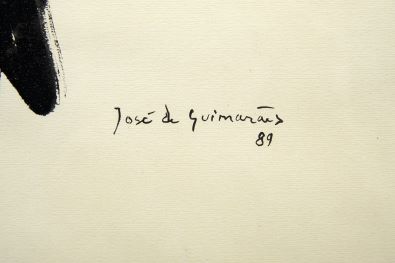 José de Guimarães
89